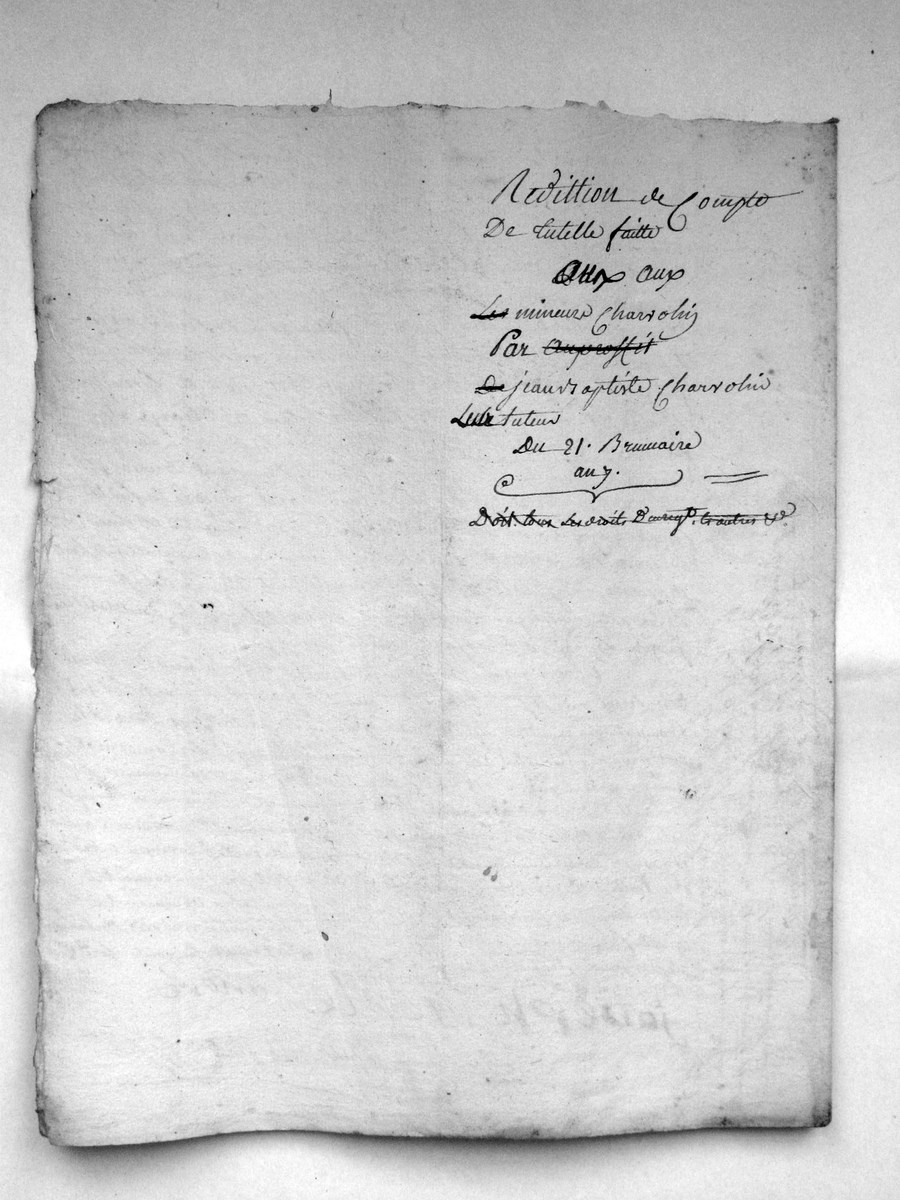 Redittion de Compte
De tutelle faitte
aux aux
Les mineurs Charvolin
Par
De jean Baptiste Charvolin
Leur tuteur
Du 21. Brumaire
an 7.
Doit tous Les droits